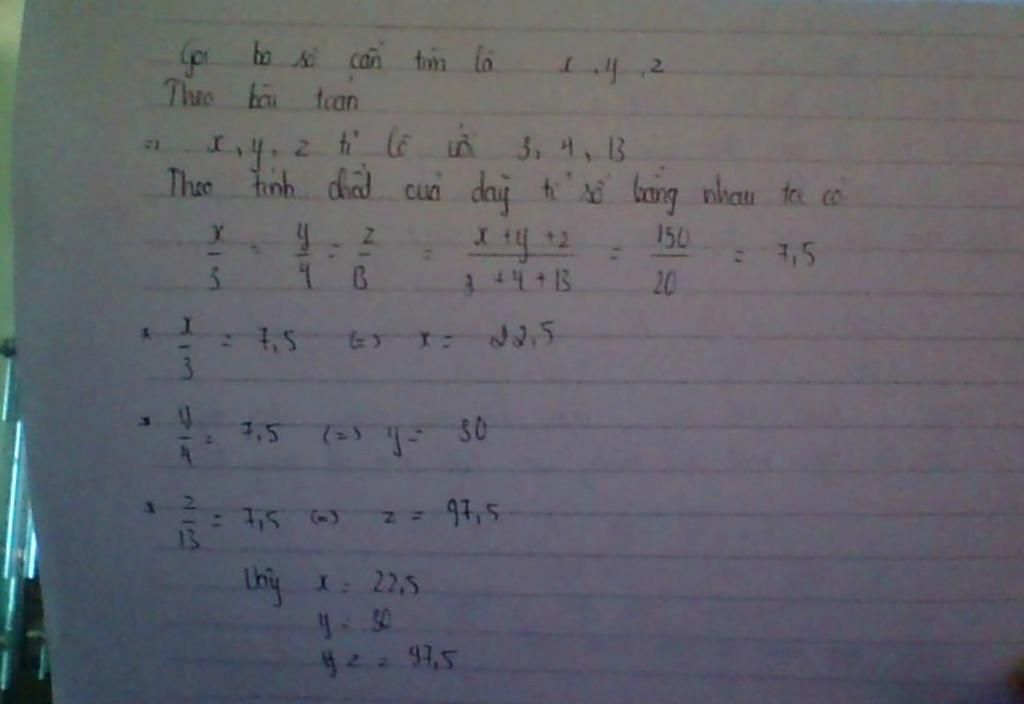 Gọi ba số cần tìm là x, y, z
Theo bài toán
=> x, y, z tỉ lệ với 3, 4, 13
Theo tính chất của dãy tỉ số bằng nhau ta có
x/3 = y/4 = z/13 = x+y+z/3+4+13 = 150/20 = 7,5
* x/3 = 7,5 (=) x = 22,5
* y/4 = 7,5 (=) y = 30
* z/13 = 7,5 (=) z = 97,5
Vậy x = 22,5
y = 30
z = 97,5